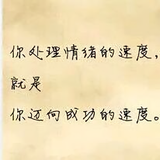 你处理情绪的速度,
就是
你迈向成功的速度。